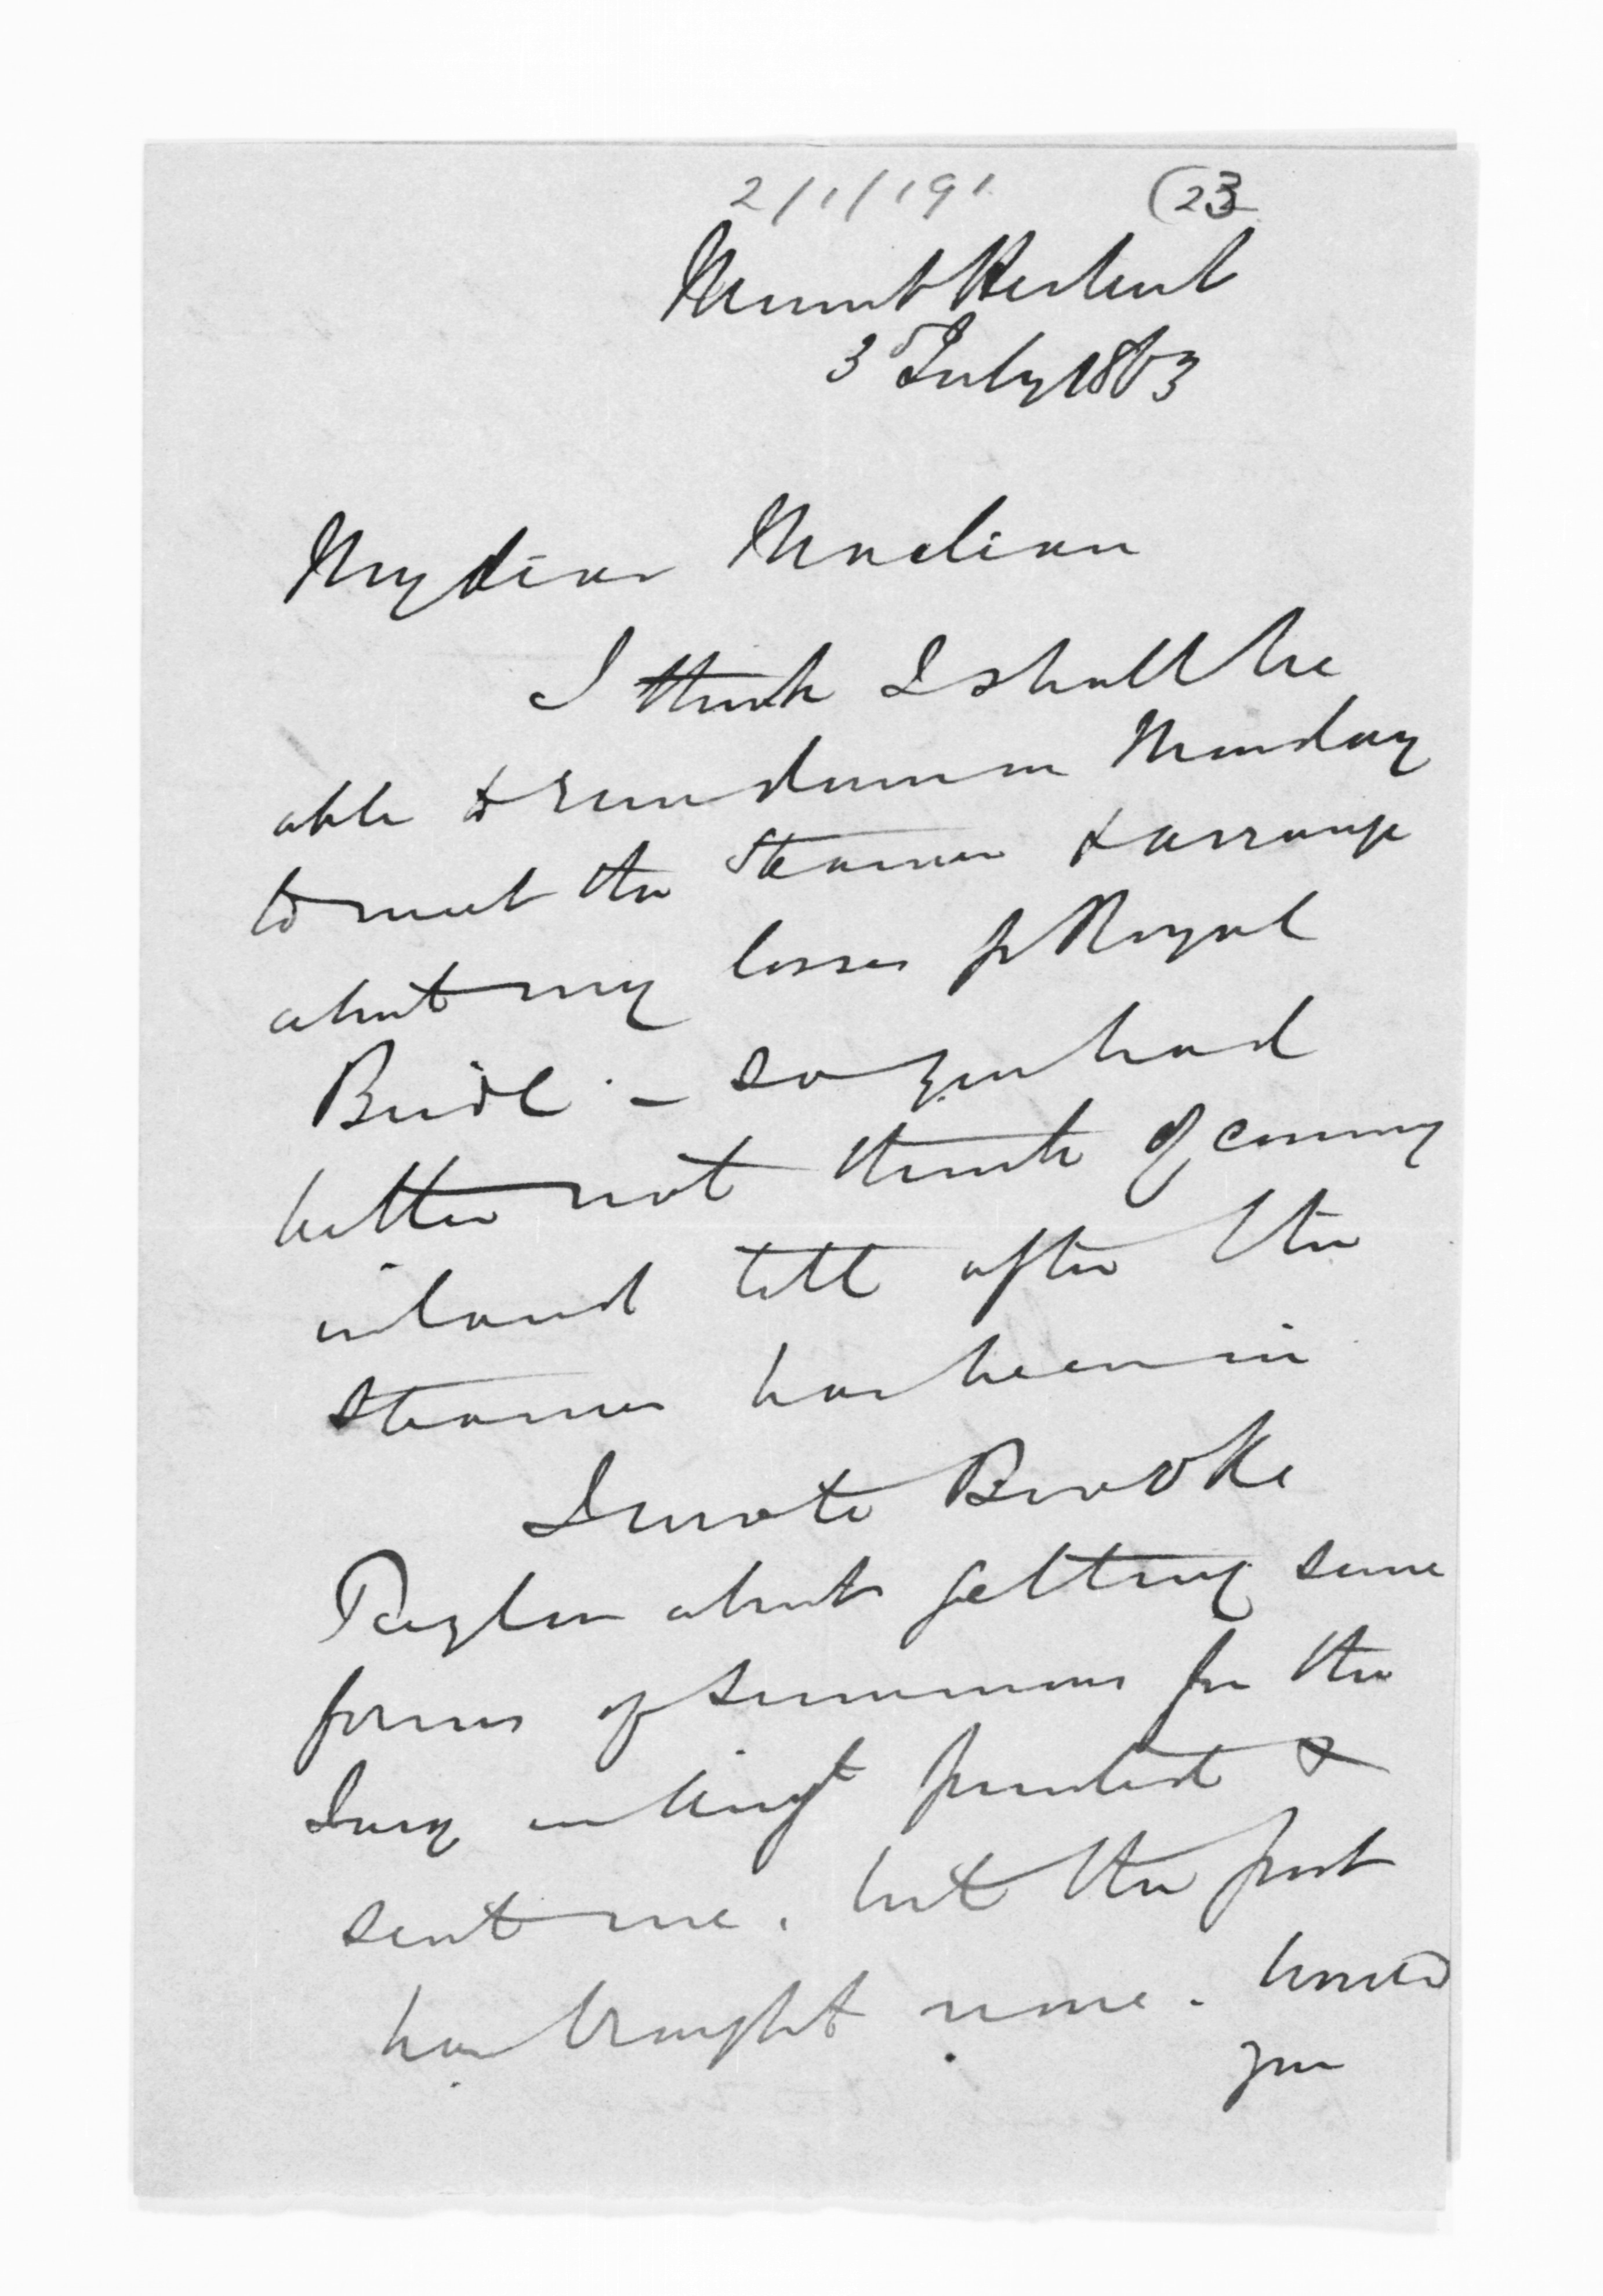 2/1/191 (23
Mount Herbert
3d July 1863
My dear Maclean
I think I shall be
able to run down on Monday
to meet the Steamer & arrange
about my losses p Royal
Bride. – so you had
better not think of coming
inland till after the
steamer has been in
I wrote Brooke
Taylor about getting some
forms of summons for the
Jury printed &
sent me. but the post
has brought none. Would
you